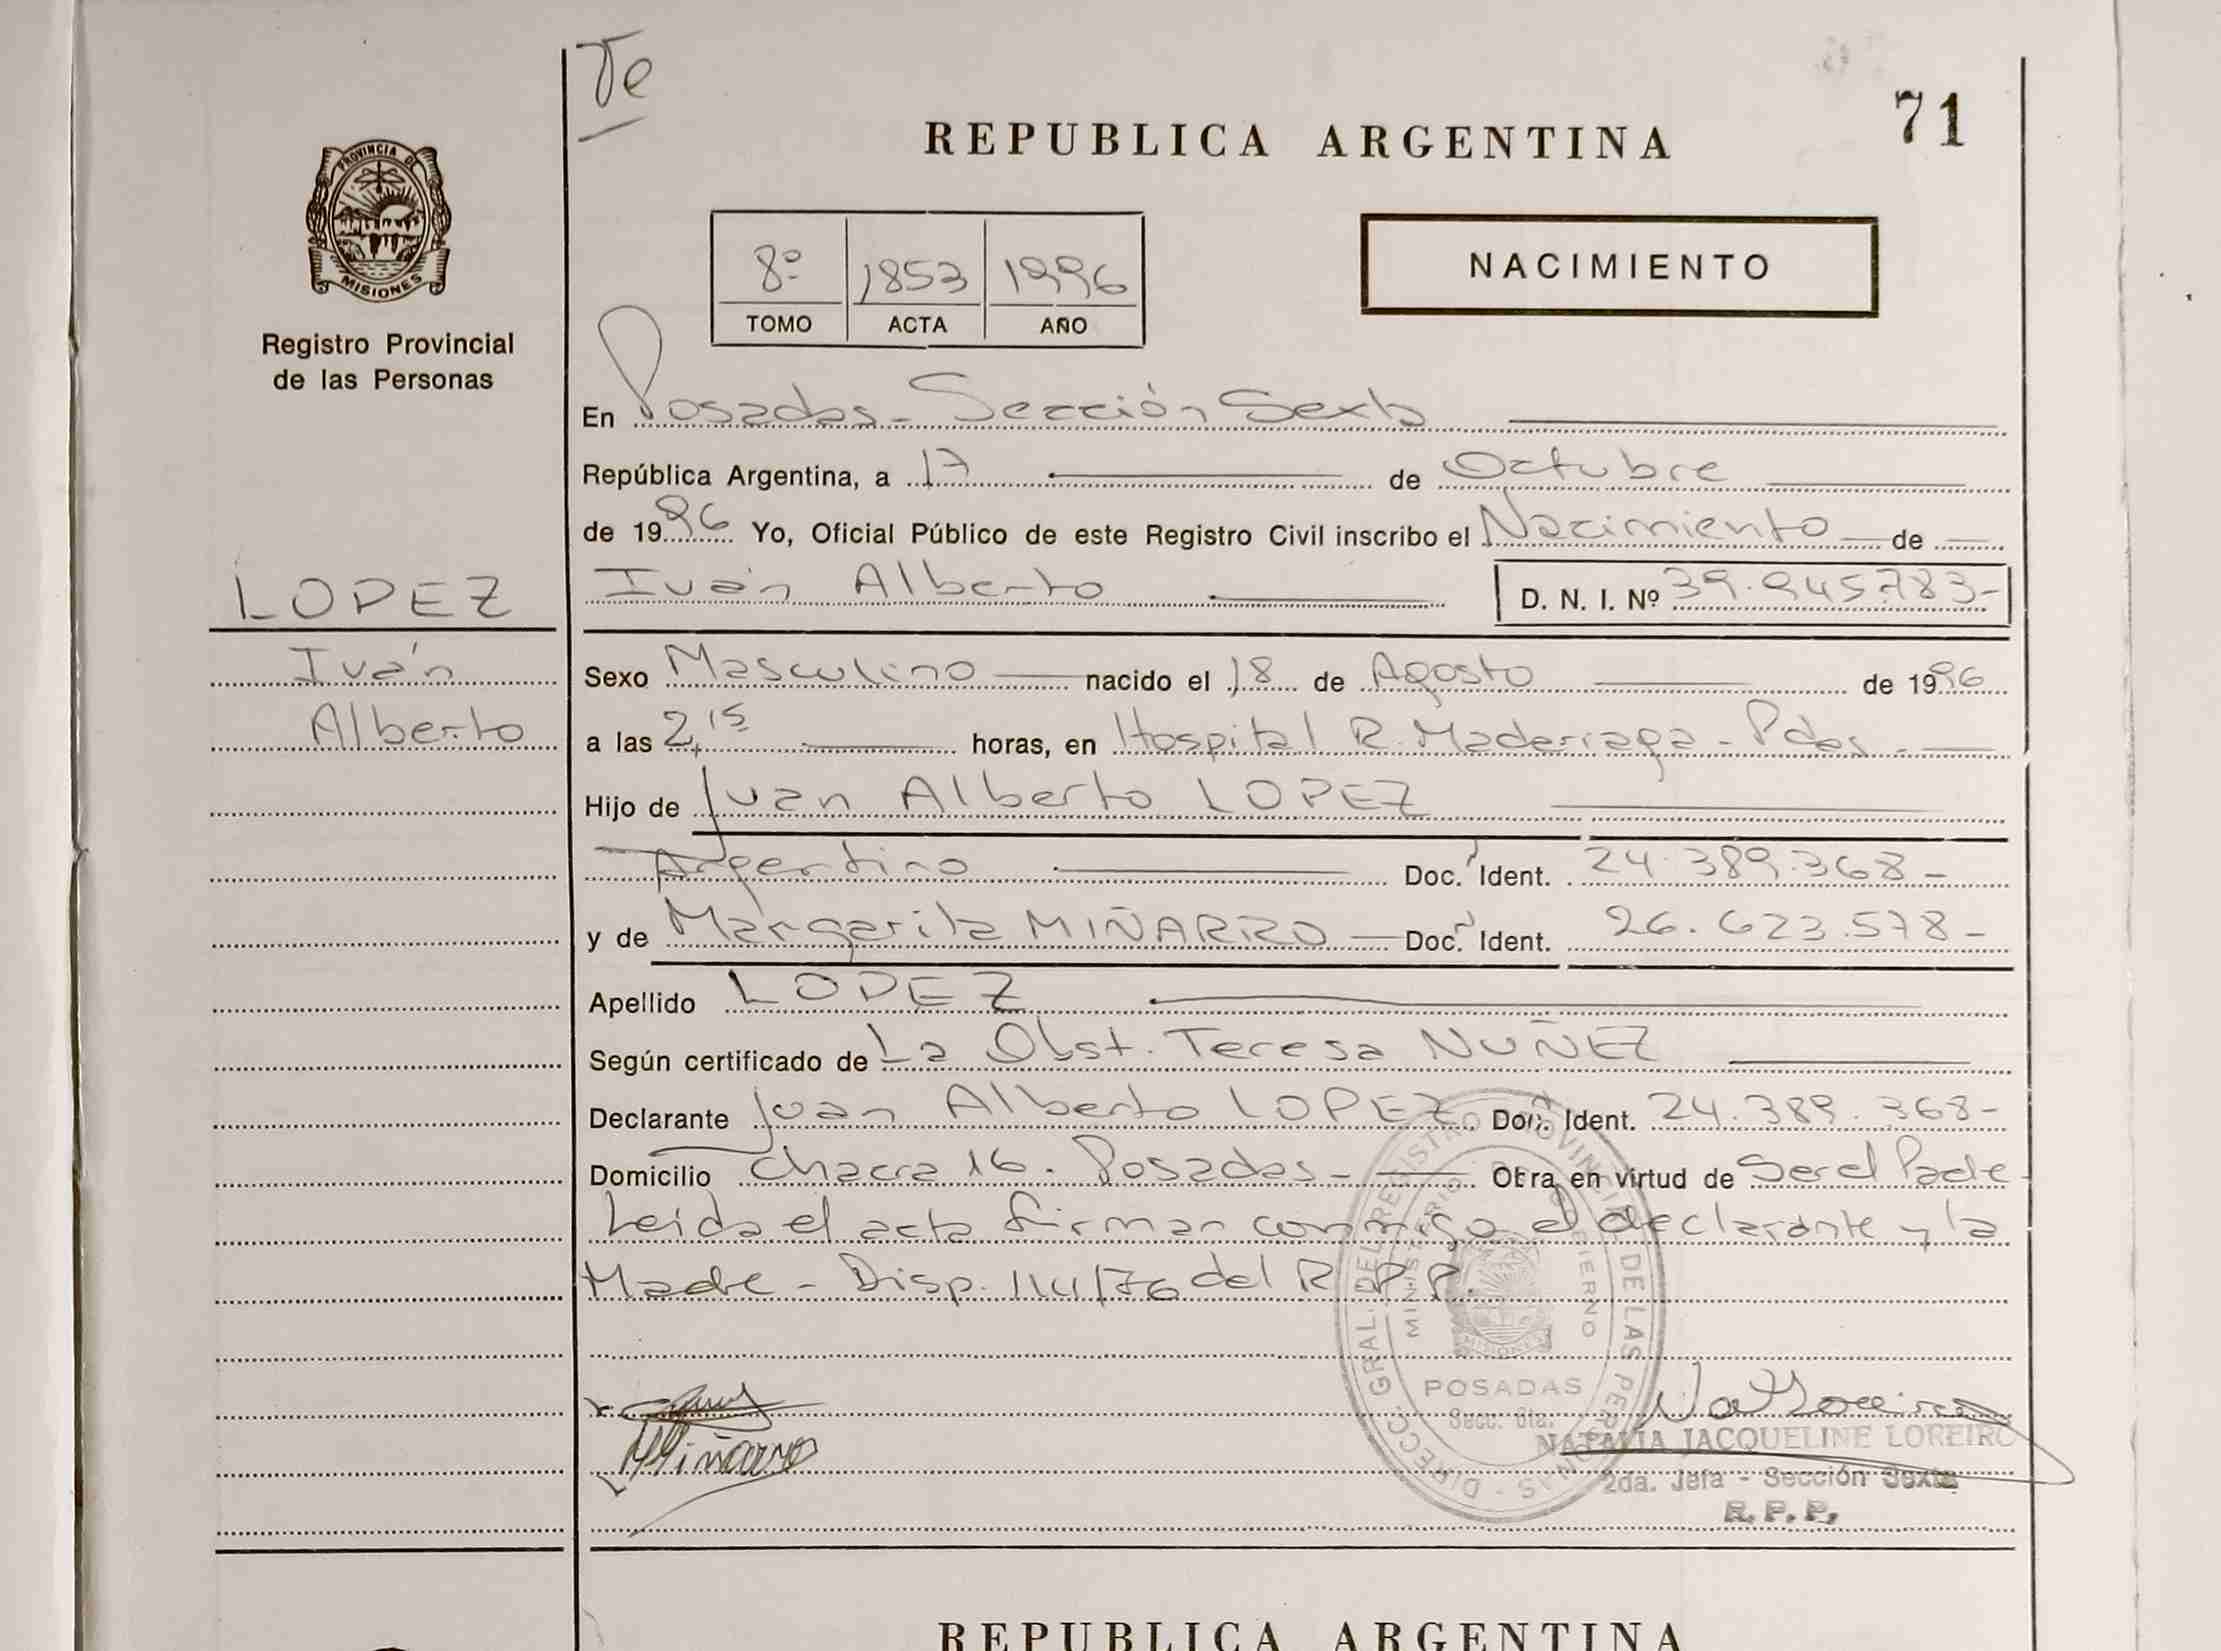 Te
REPUBLICA ARGENTINA
71
PROVINCIA DE
MISIONES
Registro Provincial
de las Personas
8º 1853 1996
TOMO ACTA AÑO
NACIMIENTO
En Posadas - Sección Sexta
República Argentina, a 17 de Octubre
de 1996 Yo, Oficial Público de este Registro Civil inscribo el Nacimiento de
LOPEZ
Iván Alberto D. N. I. Nº 39.945.783-
Iván
Sexo Masculino nacido el 18 de Agosto de 1996
Alberto
a las 2,15 horas, en Hospital R. Madariaga - Pdas.
Hijo de Juan Alberto LOPEZ
Argentino Doc. Ident. 24.389.368-
y de Margarita MIÑARRO Doc. Ident. 26.623.578-
Apellido LOPEZ
Según certificado de La Obst. Teresa NUÑEZ
Declarante Juan Alberto LOPEZ Doc. Ident. 24.389.368-
Domicilio Chacra 16. Posadas- Obra en virtud de Ser el Padre
Leida el acta firman conmigo el declarante y la
Madre - Disp. 114/76 del R.P.P.
DIRECC. GRAL. DEL REGISTRO PROVINCIAL DE LAS PERSONAS
MINISTERIO DE GOBIERNO
MISIONES
POSADAS
Secc. 6ta.
Miñarro
NATALIA JACQUELINE LOREIRO
2da. Jefa - Sección Sexta
R.P.P.
REPUBLICA ARGENTINA